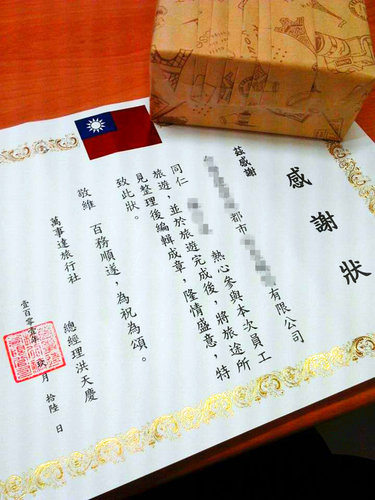 感謝狀
茲感謝
都市 有限公司
同仁 熱心參與本次員工
旅遊，並於旅遊完成後，將旅途所
見整理後編輯成章，隆情盛意，特
致此狀。
敬維 百務順遂，為祝為頌。
萬事達旅行社 總經理洪天慶
壹百零壹年 玖月 拾陸 日